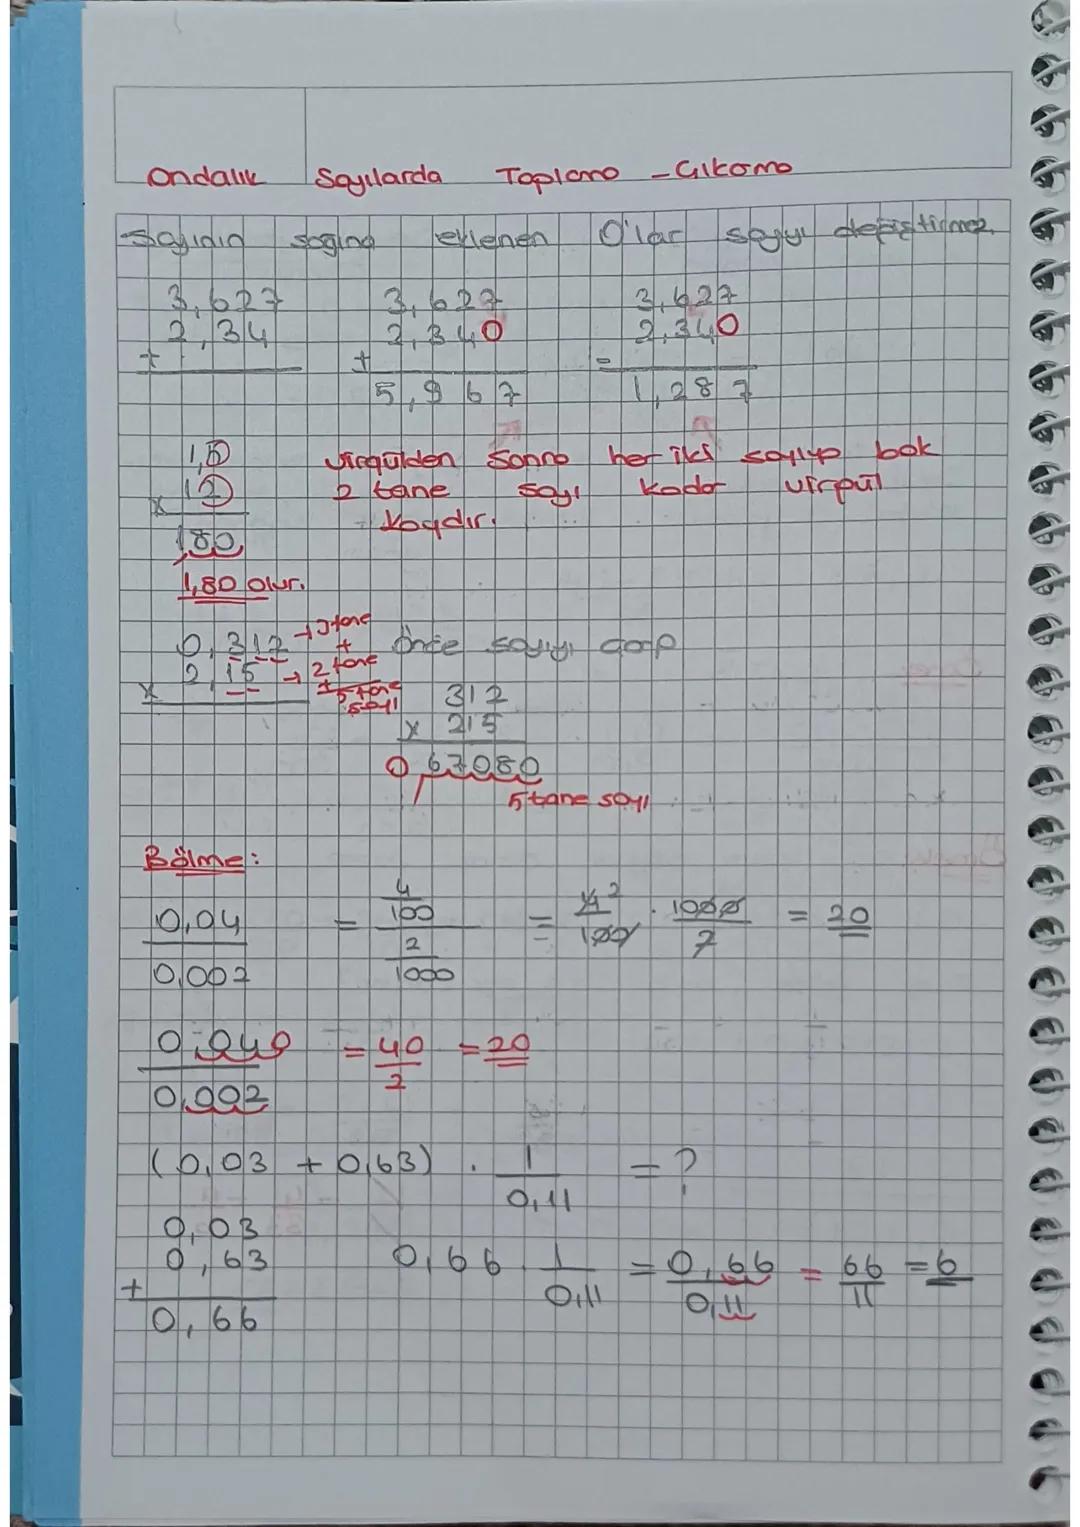 Ondalık Sayılarda Toplama - Çıkarma
Sayının sağına eklenen 0'lar sayıyı değiştirmez.
3,627 3,627 3,627
2,34 2,340 2,340
+ + -
5,967 1,287
1,5 virgülden sonra her iki sayıya bak
x 1,2 2 tane sayı kadar virgül
180 kaydır.
1,80 olur.
0,312 → 3 tane + Önce sayıyı çarp
x 2,15 → 2 tane
+ 5 tane sayı 312
x 215
0 67080
5 tane sayı
Bölme:
0,04 / 0,002 = 4/100 / 2/1000 = 4 2/100 . 1000/2 = 20
0,040 / 0,002 = 40/2 = 20
(0,03 + 0,63) . 1/0,11 = ?
0,03
0,63 0,66 . 1/0,11 = 0,66/0,11 = 66/11 = 6
+
0,66